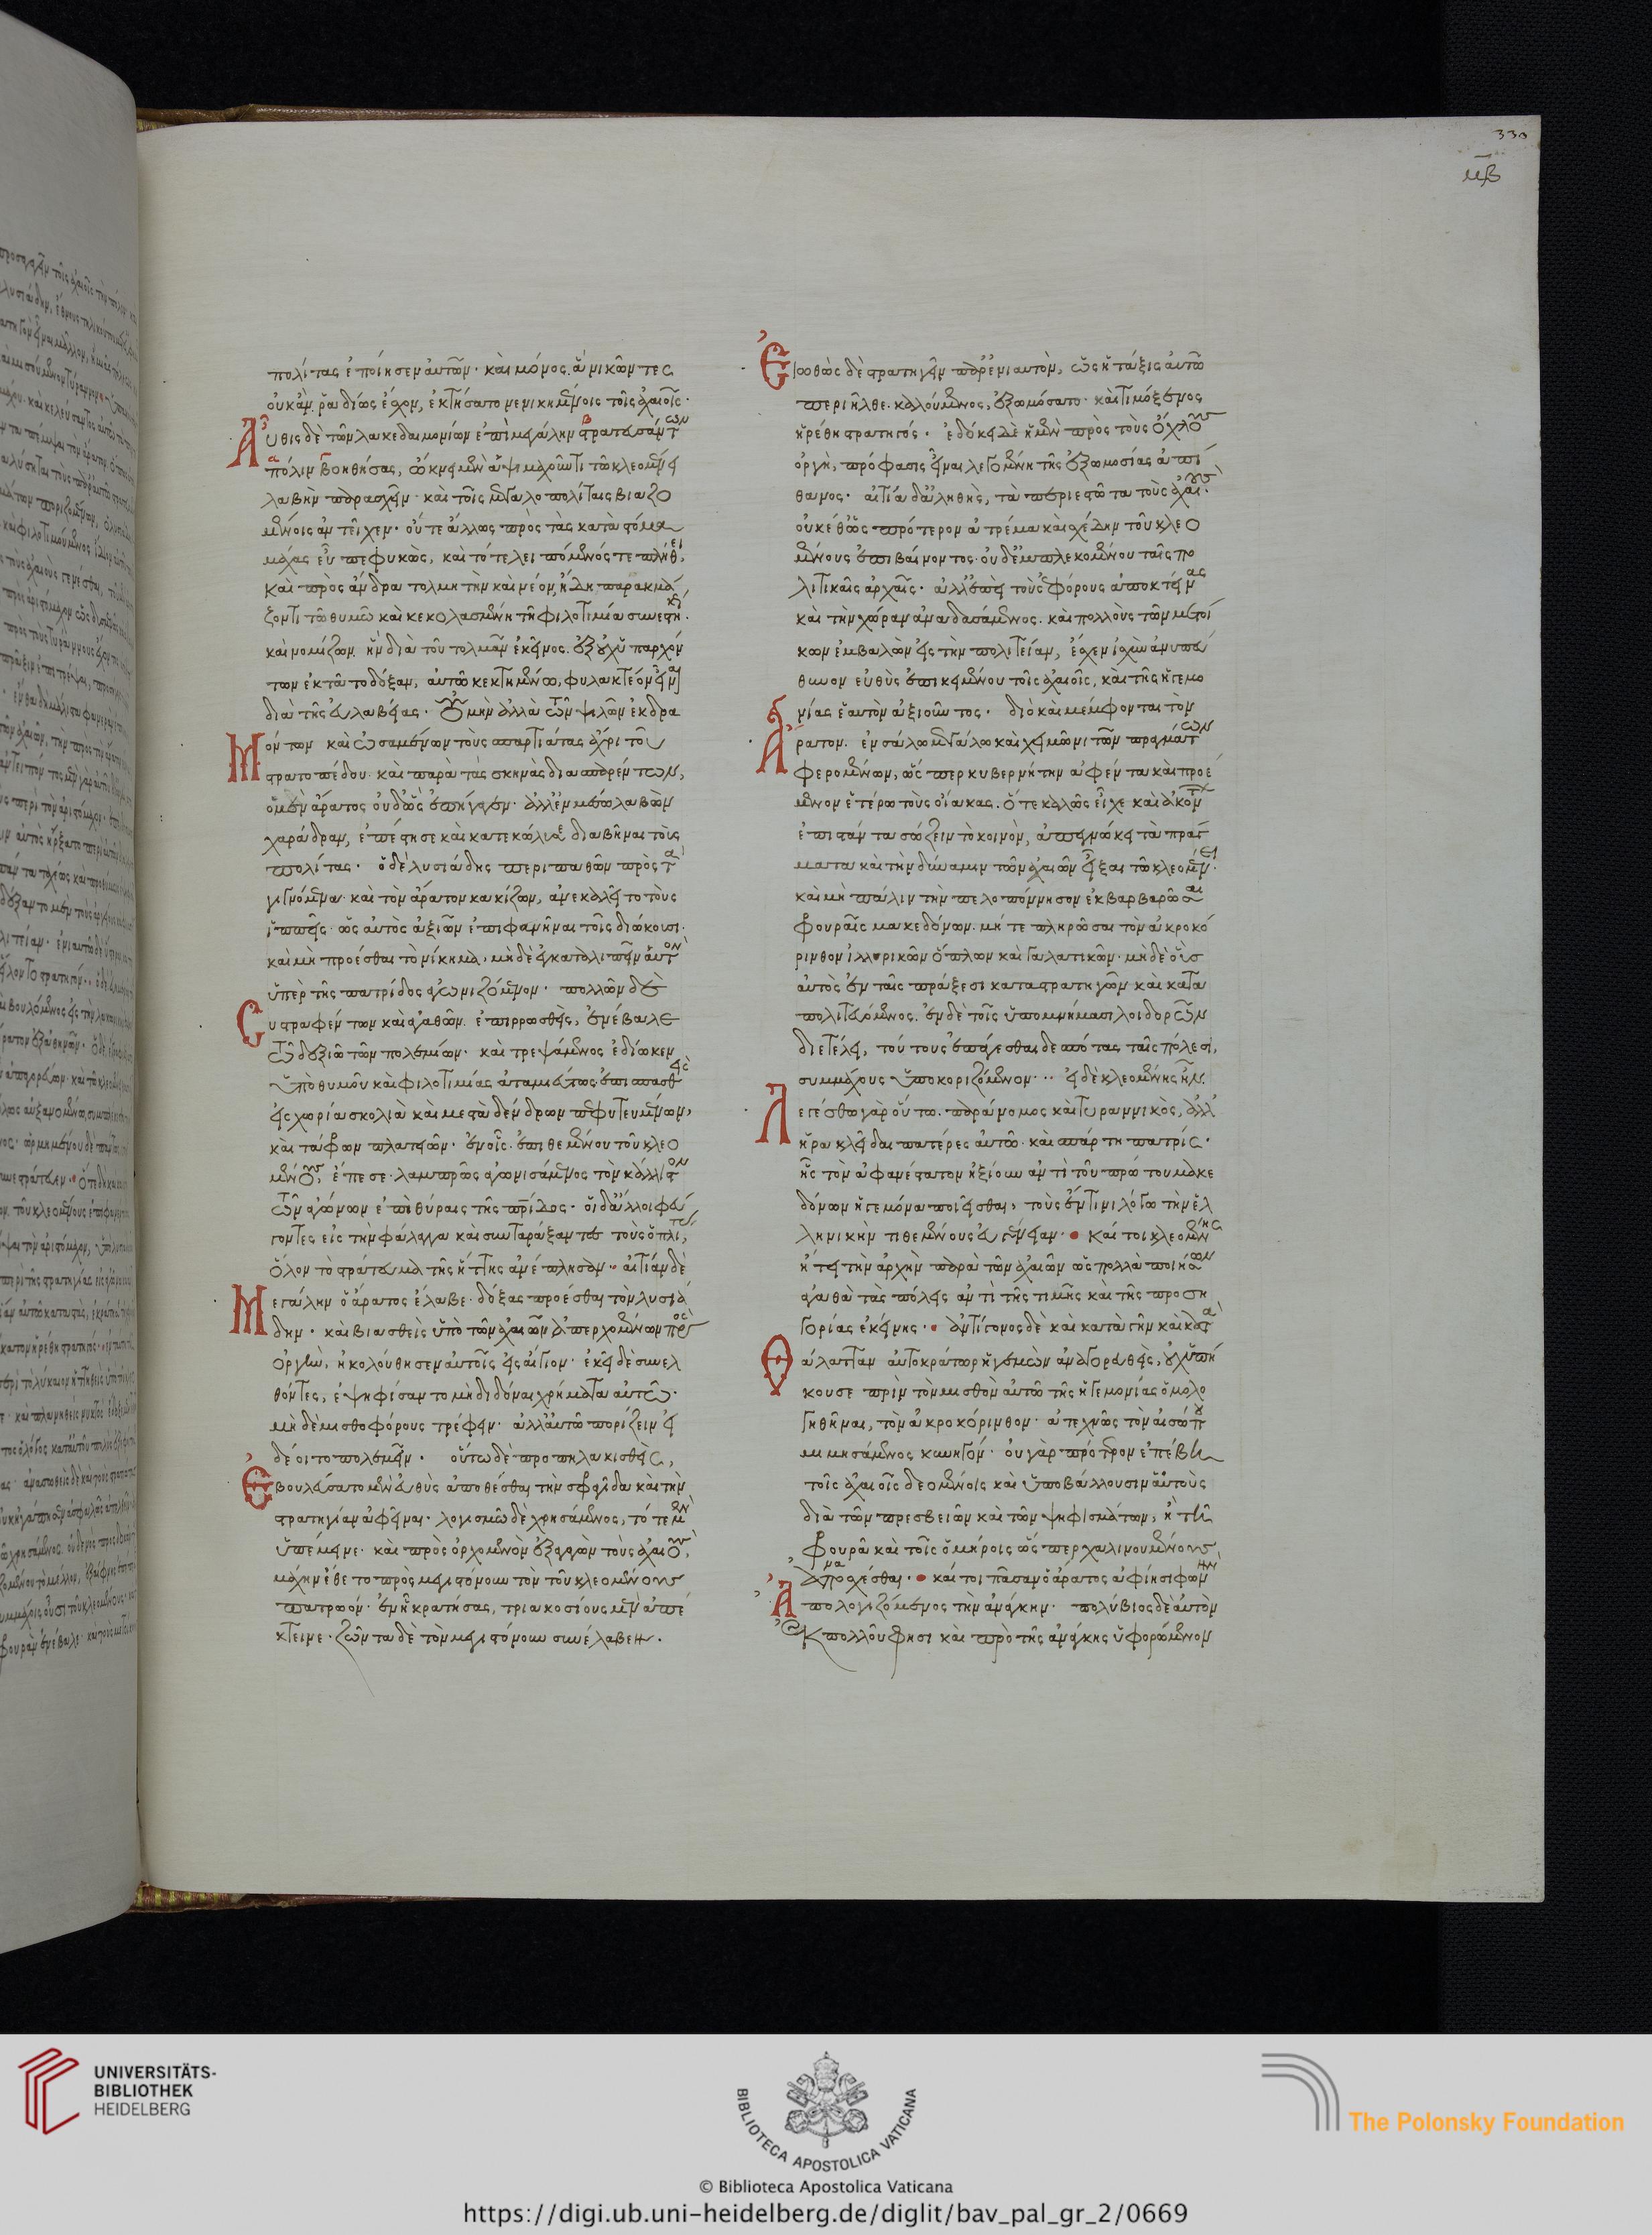 330
μβ
πολίτας ἐποίησεν ἀυτῶν· καὶ μόνος ἃ νικῶντες
οὐκ ἂν ῥαδίως ἔσχον, ἐκτήσατο νενικημένοις τοῖς ἀχαιοῖς·
Αὖθις δὲ τῶν λακεδαιμονίων ἐπὶ μεγάλην στρατευσάντων
πόλιν βοηθήσας, ὤκνει μὲν ἁψιμαχοῦντι τῶ κλεομένει
λαβὴν παρασχεῖν· καὶ τοῖς μεγαλοπολίταις βιαζο
μένοις ἀντεῖχεν· οὔτε ἄλλως πρὸς τὰς κατὰ στόμα
μάχας εὖ πεφυκὼς, καὶ τότε λειπόμενός τε πλήθει,
καὶ πρὸς ἄνδρα τολμητὴν καὶ νέον, ἤδη παρακμά
ζοντι τῶ θυμῶ καὶ κεκολασμένη τῆ φιλοτιμία συνεστηκώς·
καὶ νομίζων ἣν διὰ τοῦ τολμᾶν ἐκεῖνος ἐξ οὐχ ὑπαρχόν
των ἐκτᾶτο δόξαν, αὐτῶ κεκτημένω, φυλακτέον εἶναι
διὰ τῆς εὐλαβείας· Οὐ μὴν ἀλλὰ τῶν ψιλῶν ἐκδρα
Μόντων καὶ ὠσαμένων τοὺς σπαρτιάτας ἄχρι τοῦ
στρατοπέδου· καὶ παρὰ τὰς σκηνὰς διασπαρέντων,
ὁ μὲν ἄρατος οὐδ' ὣς ἐπήγαγεν· ἀλλ' ἐν μέσω λαβὼν
χαράδραν, ἐπέστησε καὶ κατεκώλυσε διαβῆναι τοὺς
πολίτας· ὁ δὲ λυσιάδης περιπαθῶν πρὸς τὰ
γιγνόμενα· καὶ τὸν ἄρατον κακίζων, ἀνεκαλεῖτο τοὺς
ἱππεῖς· ὡς αὐτὸς ἀξιῶν ἐπιφανῆναι τοῖς διώκουσι·
καὶ μὴ προέσθαι τὸ νίκημα, μὴ δὲ ἐγκαταλιπεῖν αὐτὸν
ὑπὲρ τῆς πατρίδος ἀγωνιζόμενον· πολλῶν δὲ
Συστραφέντων καὶ ἀγαθῶν ἐπιρρωσθεὶς, ἐνέβαλε
τῶ δεξιῶ τῶν πολεμίων· καὶ τρεψάμενος ἐδίωκεν
ὑπὸ θυμοῦ καὶ φιλοτιμίας ἀταμιεύτως ἐπισπασθεὶς
εἰς χωρία σκολιὰ καὶ μεστὰ δένδρων πεφυτευμένων,
καὶ τάφρων πλατειῶν· ἐν οἷς ἐπιθεμένου τοῦ κλεο
μένους, ἔπεσε λαμπρῶς ἀγωνισάμενος τὸν κάλλιστον
τῶν ἀγώνων ἐπὶ θύραις τῆς πατρίδος· οἱ δ' ἄλλοι φεύ
γοντες εἰς τὴν φάλαγγα καὶ συνταράξαντες τοὺς ὁπλίτας,
ὅλον τὸ στράτευμα τῆς ἥττης ἀνέπλησαν· αἰτίαν δὲ
Μεγάλην ὁ ἄρατος ἔλαβε· δόξας προέσθαι τὸν λυσιά
δην· καὶ βιασθεὶς ὑπὸ τῶν ἀχαιῶν ἀπερχομένων πρὸς
ὀργὴν, ἠκολούθησεν αὐτοῖς εἰς αἴγιον· ἐκεῖ δὲ συνελ
θόντες, ἐψηφίσαντο μὴ διδόναι χρήματα αὐτῶ·
μὴ δὲ μισθοφόρους τρέφειν· ἀλλ' αὐτῶ πορίζειν εἰ
δέοιτο πολεμεῖν· οὕτω δὲ προπηλακισθεὶς,
Ἐβουλεύσατο μὲν εὐθὺς ἀποθέσθαι τὴν σφραγῖδα καὶ τὴν
στρατηγίαν ἀφεῖναι· λογισμῶ δὲ χρησάμενος, τότε μὲν
ὑπέμεινε· καὶ πρὸς ὀρχομενὸν ἐξαγαγὼν τοὺς ἀχαιοὺς,
μάχην ἔθετο πρὸς μεγιστόνουν τὸν τοῦ κλεομένους
πατρωόν· ἐν ἧ κρατήσας, τριακοσίους μὲν ἀπέ
κτεινε· ζῶντα δὲ τὸν μεγιστόνουν συνέλαβεν.
Ἐιωθὼς δὲ στρατηγεῖν παρ' ἐνιαυτὸν, ὡς ἡ τάξις αὐτῶ
περιῆλθε καλούμενος, ἐξωμόσατο· καὶ τιμόξενος
ἡρέθη στρατηγός· ἐδόκει δὲ ἡ μὲν πρὸς τοὺς ὄχλους
ὀργὴ, πρόφασις εἶναι λεγομένη τῆς ἐξωμοσίας ἀπί
θανος· αἰτία δ' ἀληθὴς, τὰ περιεστῶτα τοὺς ἀχαιούς·
οὐκέθ' ὡς πρότερον ἀτρέμα καὶ σχέδην τοῦ κλεο
μένους ἐπιβαίνοντος· οὐδ' ἐμπλεκομένου ταῖς πο
λιτικαῖς ἀρχαῖς· ἀλλ' ἐπεὶ τοὺς ἐφόρους ἀποκτείνας
καὶ τὴν χώραν ἀναδασάμενος καὶ πολλοὺς τῶν μετοί
κων ἐμβαλὼν εἰς τὴν πολιτείαν, ἔσχεν ἰσχὺν ἀνυπεύ
θυνον εὐθὺς ἐπικειμένου τοῖς ἀχαιοῖς, καὶ τῆς ἡγεμο
νίας ἑαυτὸν ἀξιοῦντος· διὸ καὶ μέμφονται τὸν
Ἄρατον ἐν σάλω μεγάλω καὶ χειμῶνι τῶν πραγμάτων
φερομένων, ὥσπερ κυβερνήτην ἀφέντα καὶ προέ
μενον ἑτέρω τοὺς οἴακας· ὅτε καλῶς εἶχε καὶ ἀκόντων
ἐπιστάντα σώζειν τὸ κοινὸν, ἀπεγνώκει τὰ πράγ
ματα καὶ τὴν δύναμιν τῶν ἀχαιῶν εἶξαι τῶ κλεομένει·
καὶ μὴ πάλιν τὴν πελοπόννησον ἐκβαρβαρῶσαι
φρουραῖς μακεδόνων· μή τε πληρῶσαι τὸν ἀκροκό
ρινθον ἰλλυρικῶν ὅπλων καὶ γαλατικῶν· μὴ δὲ οὓς
αὐτὸς ἐν ταῖς πράξεσι καταστρατηγῶν καὶ κατα
πολιτευόμενος· ἐν δὲ τοῖς ὑπομνήμασι λοιδορῶν
διετέλει, τούτους ἐπάγεσθαι δεσπότας ταῖς πόλεσι,
συμμάχους ὑποκοριζόμενον· εἰ δὲ κλεομένης ἦν
Λεγέσθω γὰρ οὕτω παράνομος καὶ τυραννικὸς, ἀλλ'
ἡρακλεῖδαι πατέρες αὐτῶ· καὶ σπάρτη πατρίς·
ἧς τὸν ἀφανέστατον ἠξίουν ἀντὶ τοῦ πρώτου μακε
δόνων ἡγεμόνα ποιεῖσθαι, τοὺς ἔν τινι λόγω τὴν ἑλ
ληνικὴν τιθεμένους εὐγένειαν· καί τοι κλεομένης
ἤτει τὴν ἀρχὴν παρὰ τῶν ἀχαιῶν ὡς πολλὰ ποιήσων
ἀγαθὰ τὰς πόλεις ἀντὶ τῆς τιμῆς καὶ τῆς προση
γορίας ἐκείνης· ἀντίγονος δὲ καὶ κατὰ γῆν καὶ κατὰ
Θάλατταν αὐτοκράτωρ ἡγεμὼν ἀναγορευθεὶς, οὐχ ὑπή
κουσε πρὶν τὸν μισθὸν αὐτῶ τῆς ἡγεμονίας ὁμολο
γηθῆναι, τὸν ἀκροκόρινθον· ἀτεχνῶς τὸν αἰσώπου
μιμησάμενος κυνηγόν· οὐ γὰρ πρότερον ἐπέβη
τοῖς ἀχαιοῖς δεομένοις καὶ ὑποβάλλουσιν αὑτοὺς
διὰ τῶν πρεσβειῶν καὶ τῶν ψηφισμάτων, ἢ τῆ
φρουρᾶ καὶ τοῖς ὁμήροις ὥσπερ χαλινουμένους
ἀνασχέσθαι· καί τοι πᾶσαν ὁ ἄρατος ἀφίησι φωνὴν
Ἀπολογιζόμενος τὴν ἀνάγκην· πολύβιος δὲ αὐτὸν
Ἐκ πολλοῦ φησι καὶ πρὸ τῆς ἀνάγκης ὑφορώμενον
UNIVERSITÄTS-
BIBLIOTHEK
HEIDELBERG
BIBLIOTECA APOSTOLICA VATICANA
The Polonsky Foundation
© Biblioteca Apostolica Vaticana
https://digi.ub.uni-heidelberg.de/diglit/bav_pal_gr_2/0669